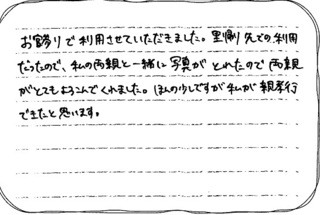 お宮参りで利用させていただきました。里帰り先での利用
だったので、私の両親と一緒に写真がとれたので両親
がとてもよろこんでくれました。ほんの少しですが私が親孝行
できたと思います。